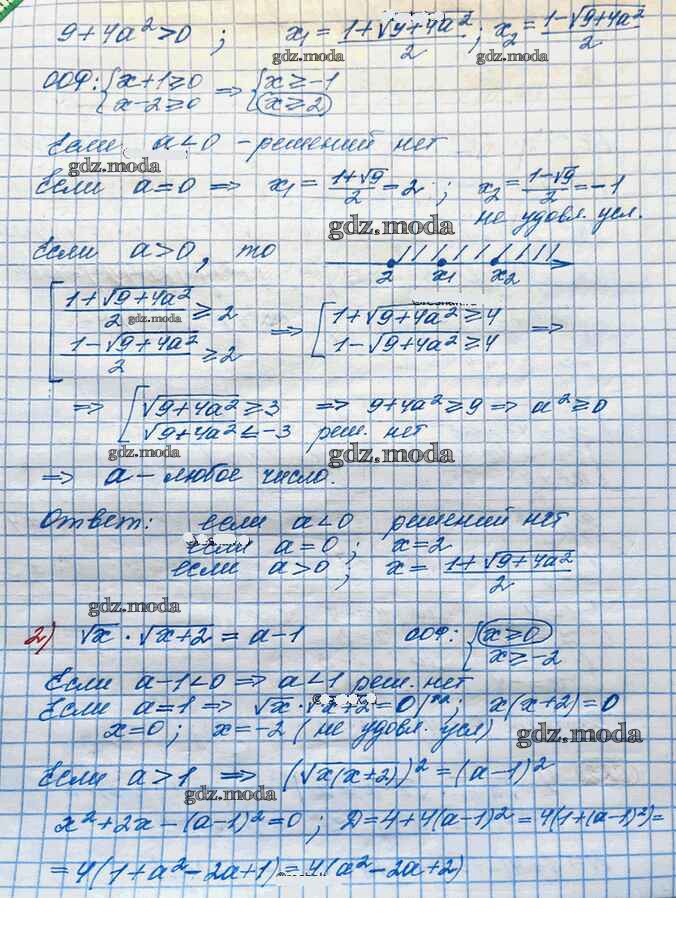 9+4a²>0 ; x₁ = (1+√(9+4a²))/2 ; x₂ = (1-√(9+4a²))/2
gdz.moda gdz.moda
ООФ: { x+1≥0 ⇒ { x≥-1
x-2≥0 x≥2
Если a<0 - решений нет
gdz.moda
Если a=0 ⇒ x₁ = (1+√9)/2 = 2 ; x₂ = (1-√9)/2 = -1
не удовл. усл.
gdz.moda
Если a>0, то
2 x₁ x₂
[ (1+√(9+4a²))/2 ≥ 2 ⇒ [ 1+√(9+4a²) ≥ 4 ⇒
gdz.moda
(1-√(9+4a²))/2 ≥ 2 1-√(9+4a²) ≥ 4
⇒ [ √(9+4a²) ≥ 3 ⇒ 9+4a² ≥ 9 ⇒ a² ≥ 0
√(9+4a²) ≤ -3 реш. нет
gdz.moda gdz.moda
⇒ a - любое число.
Ответ: если a<0 решений нет
если a=0 ; x=2
если a>0 ; x = (1+√(9+4a²))/2
gdz.moda
2) √x · √(x+2) = a-1 ООФ: { x≥0
x≥-2
Если a-1<0 ⇒ a<1 реш. нет
Если a=1 ⇒ √x · √(x+2) = 0 |^2 ; x(x+2)=0
x=0 ; x=-2 (не удовл. усл)
gdz.moda
Если a>1 ⇒ (√(x(x+2)))² = (a-1)²
gdz.moda
x²+2x-(a-1)²=0 ; D=4+4(a-1)² = 4(1+(a-1)²)=
=4(1+a²-2a+1)=4(a²-2a+2)